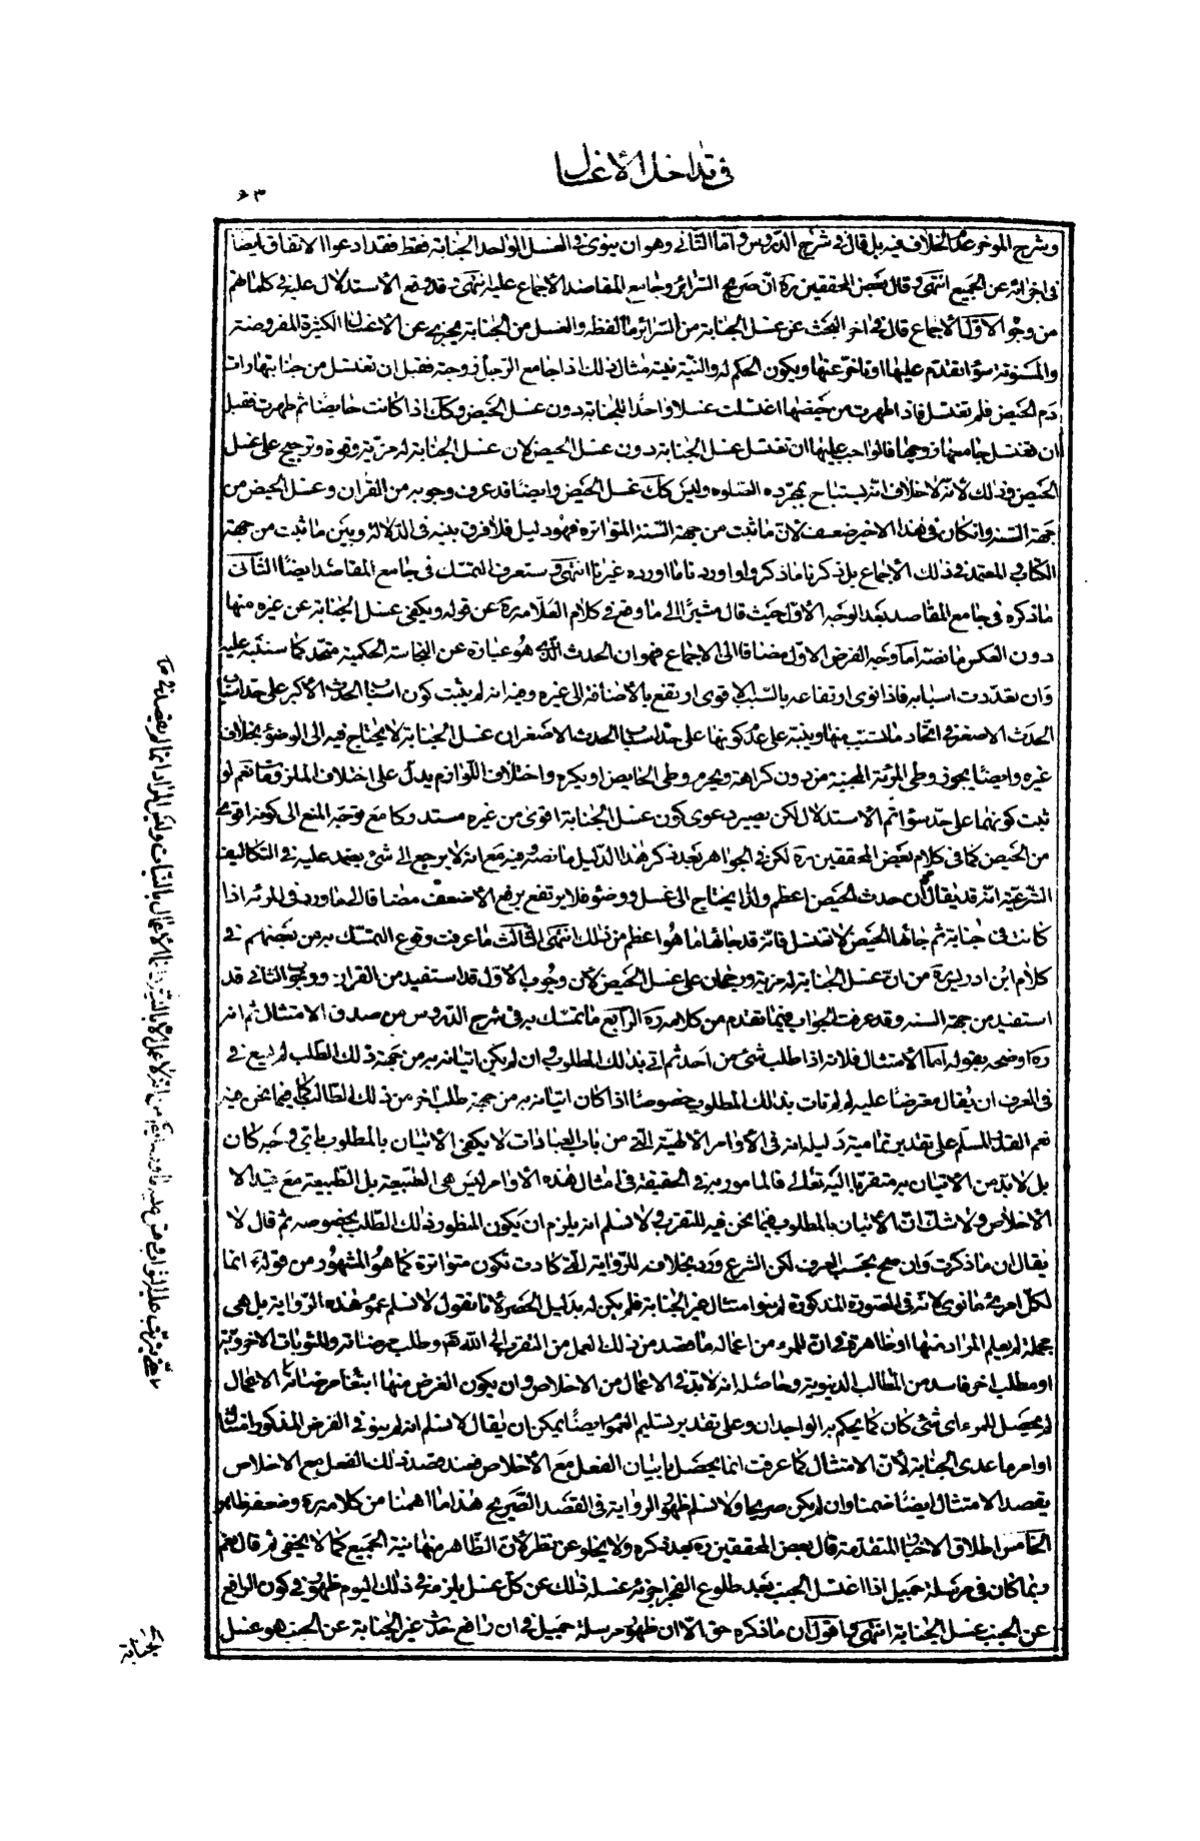 في تداخل الأغسال
٦٣
وبشرح الموجز عدم الخلاف فيه بل قال في شرح الدروس واما الثاني وهو ان ينوى في الغسل الواحد الجنابة فقط فقد ادعوا الاتفاق ايضا
في اجزائه عن الجميع انتهى وقال بعض المحققين ره ان صريح السرائر وجامع المقاصد الاجماع عليه انتهى وقد وقع الاستدلال عليه في كلماتهم
من وجوه الاول الاجماع قال في اخر البحث عن غسل الجنابة من السرائر ما لفظه والغسل من الجنابة يجزى عن الاغسال الكثيرة المفروضة
والمسنونة سواء تقدم عليها او تاخر عنها ويكون الحكم له والنية نيته مثال ذلك اذا جامع الرجل زوجته فقبل ان تغتسل من جنابتها رات
دم الحيض فلم تغتسل فاذا طهرت من حيضها اغتسلت غسلا واحدا للجنابة دون غسل الحيض وكك اذا كانت حايضا ثم طهرت فقبل
ان تغتسل جامعها زوجها فالواجب عليها ان تغتسل غسل الجنابة دون غسل الحيض لان غسل الجنابة له مزية وقوة وترجيح على غسل
الحيض وذلك لانه لا خلاف انه يستباح بمجرده الصلوه وليس كك غسل الحيض وايضا قد عرف وجوبه من القران وغسل الحيض من
جهة السنة وان كان في هذا الاخير ضعف لان ما ثبت من جهة السنة المتواترة فهو دليل فلا فرق بينه في الدلالة وبين ما ثبت من جهة
الكتاب والمعتمد في ذلك الاجماع بل ذكرنا ما ذكروا واوردنا ما اورده غيرنا انتهى وستعرف التمسك في جامع المقاصد ايضا الثاني
ما ذكره في جامع المقاصد بعد الوجه الاول حيث قال مشيرا الى ما وقع في كلام العلامة ره عن قوله ويكفى غسل الجنابة عن غيره منها
دون العكس ما نصه اما وجه الفرض الاول مضافا الى الاجماع فهو ان الحدث الذي هو عبارة عن النجاسة الحكمية متحد كما سننبه عليه
وان تعددت اسبابه فاذا نوى ارتفاعه بالسبب الاقوى ارتفع بالاضافة الى غيره وفيه انه لم يثبت كون اسباب الحدث الاكبر على حد اسباب
الحدث الاصغر في اتحاد ما تسبب منها وينبه على عدم كونها على حد اسباب الحدث الاصغر ان غسل الجنابة لا يحتاج فيه الى الوضوء بخلاف
غيره وايضا يجوز وطى المرئة الجنبة من دون كراهة ويحرم وطى الحايض او يكره واختلاف اللوازم يدل على اختلاف الملزومات نعم لو
ثبت كونهما على حد سواء تم الاستدلال لكن يصير دعوى كون غسل الجنابة اقوى من غيره مستدركا مع توجه المنع الى كونه اقوى
من الحيض كما في كلام بعض المحققين ره لكن في الجواهر بعد ذكر هذا الدليل ما نصه وفيه مع انه لا يرجع الى شئ يعتمد عليه في التكاليف
الشرعية انه قد يقال ان حدث الحيض اعظم ولذا يحتاج الى غسل ووضوء فلا يرتفع برفع الاضعف مضافا الى ما ورد في المرئه اذا
كانت في جنابة ثم جائها الحيض لا تغتسل فانه قد جائها ما هو اعظم من ذلك انتهى الثالث ما عرفت وقوع التمسك به من بعضهم في
كلام ابن ادريس ره من ان غسل الجنابة له مزية ورجحان على غسل الحيض لان وجوب الاول قد استفيد من القران ووجوب الثاني قد
استفيد من جهة السنه وقد عرفت الجواب فيما تقدم من كلامه ره الرابع ما تمسك به في شرح الدروس من صدق الامتثال ثم انه
ره اوضحه بقوله اما الامتثال فلانه اذا طلب شئ من احد ثم اتى بذلك المطلوب وان لم يكن اتيانه به من جهة ذلك الطلب لم يسع في
في العرف ان يقال معترضا عليه لم لم تات بذلك المطلوب خصوصا اذا كان اتيانه به من جهة طلب اخر من ذلك الطالب كما فيما نحن فيه
نعم القدر المسلم على تقدير تمامية دليله انه في الأوامر الالهية التي من باب العبادات لا يكفى الاتيان بالمطلوب باي وجه كان
بل لا بد من الاتيان به متقربا اليه تعالى فالمامور به في الحقيقة في امثال هذه الأوامر ليس هى الطبيعة بل الطبيعة مع قيد الا
الاخلاص ولا شك ان الاتيان بالمطلوب فيما نحن فيه للتقرب ولا نسلم انه يلزم ان يكون المنظور ذلك الطلب بخصوصه ثم قال لا
يقال ان ما ذكرت وان صح بحسب العرف لكن الشرع ورد بخلافه للرواية التي كادت تكون متواترة كما هو المشهور من قوله ع انما
لكل امرئ ما نوى لانه في الصورة المذكورة لم ينو امتثال غير الجنابة فلم يكن له بدليل الحصر لانا نقول لا نسلم عموم هذه الرواية بل هى
مجملة لم يعلم المراد منها او ظاهرة في ان للمرء من اعماله ما قصد من ذلك العمل من التقرب الى الله تعالى وطلب مرضاته والمثوبات الاخروية
او مطلب اخر فاسد من المطالب الدنيوية وحاصله انه لا بد في الاعمال من الاخلاص وان يكون الغرض منها ابتغاء مرضاته تعالى لا الاعمال
لم يحصل للمرء اى شئ كان كما يحكم به الوجدان وعلى تقدير تسليم العموم ايضا يمكن ان يقال لا نسلم انه لم ينو في الفرض المذكور امتثال
اوامر ما عدى الجنابة لان الامتثال كما عرفت انما يحصل باتيان الفعل مع الاخلاص فعند قصد ذلك الفعل مع الاخلاص
يقصد الامتثال ايضا ضمنا وان لم يكن صريحا ولا نسلم ظهور الرواية في القصد الصريح هذا ما اهمنا من كلامه ره وضعفه ظاهر
الخامس اطلاق الاخبار المتقدمة قال بعض المحققين ره بعد ذكره ولا يخلو عن نظر لان الظاهر منها نية الجميع كما لا يخفى ثم قال نعم
ربما كان في مرسلة جميل اذا اغتسل الجنب بعد طلوع الفجر اجزئه غسله ذلك عن كل غسل يلزمه في ذلك اليوم ظهور في كون الرافع
عن الجنب غسل الجنابة انتهى واقول ان ما ذكره حق الا ان ظهور مرسلة جميل في ان رافع حدث غير الجنابة عن الجنب هو غسل
الجنابة